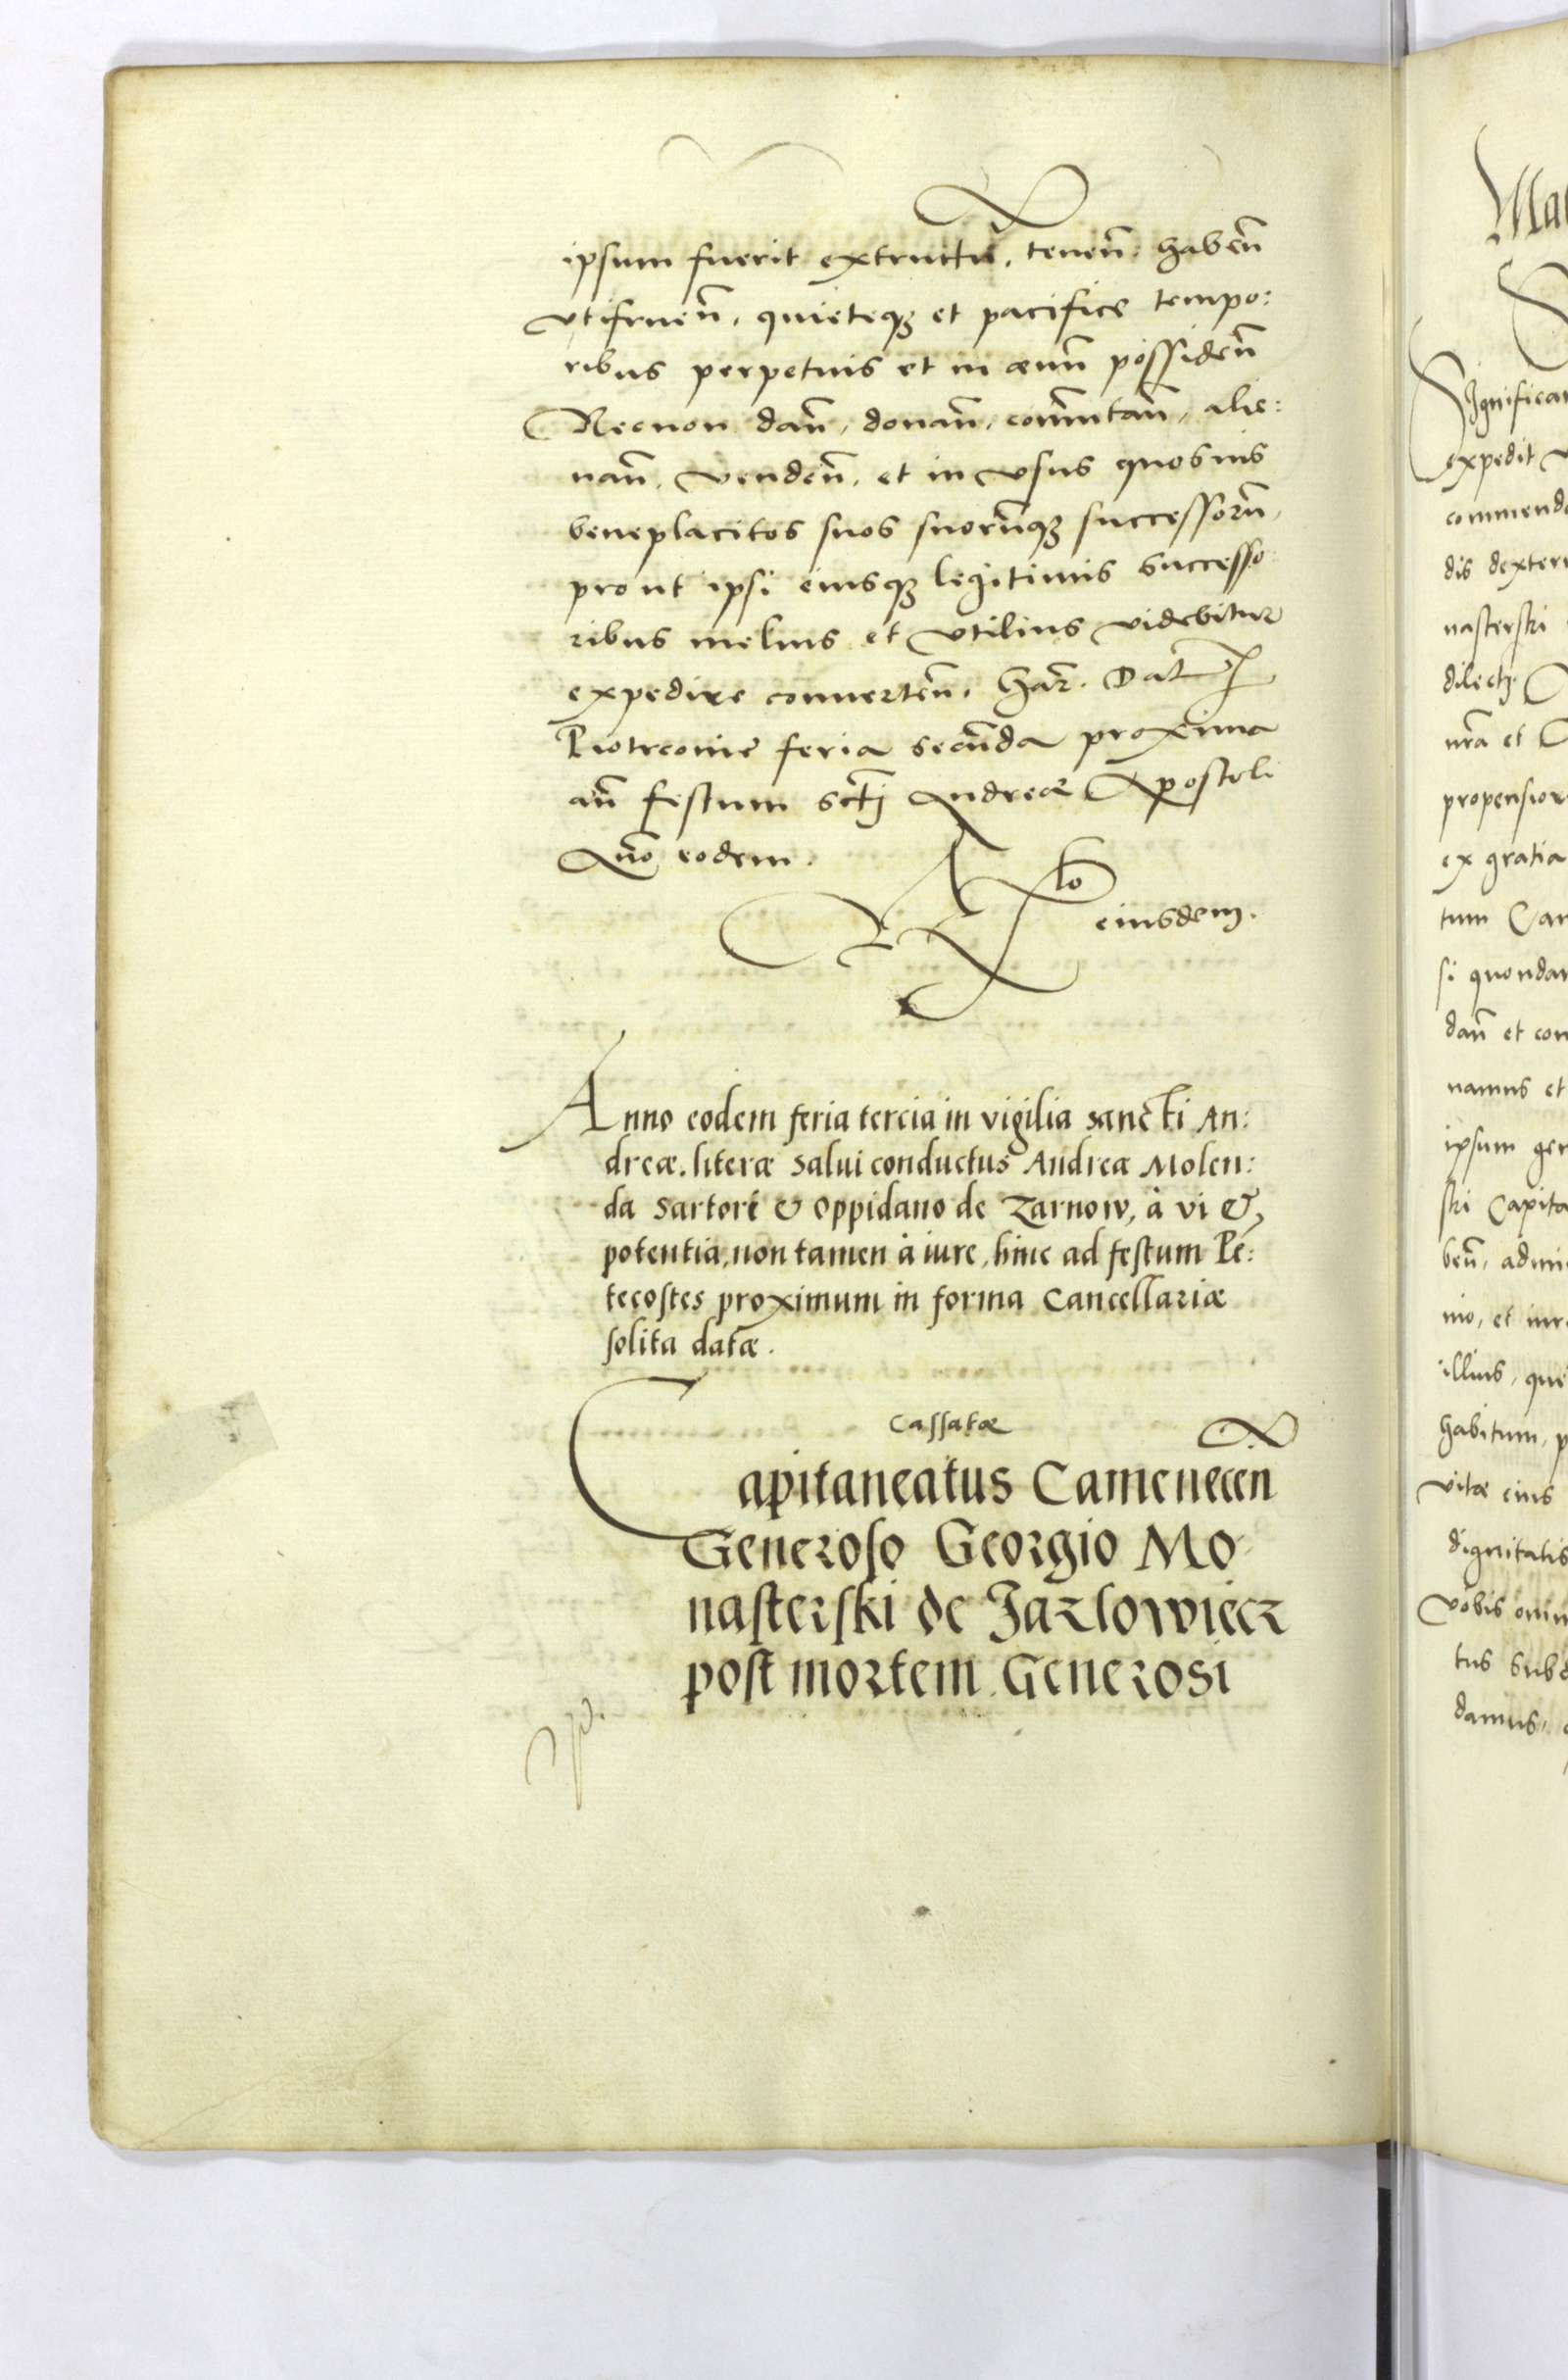 ipsum fuerit extructũ, tenen̄. haben̄
vtifruen̄, quieteq₃ et pacifice tempo:
ribus perpetuis et in aeuū possiden̄
Necnon dan̄, donan̄, com̄utan̄, alie:
nan̄, venden̄, et in vsus quosuis
beneplacitos suos suorūq₃ successorū,
prout ipsi eiusq₃ legitimis successo
ribus melius et vtilius videbitur
expedire conuerten̄. har̄. Dat
Piotrcoviae feria secūda proxima
an̄ festum sctj Andreae Apostoli
Ano eodem.
Rlo
eiusdem.
Anno eodem feria tercia in vigilia sancti An:
dreæ. literæ salui conductus Andreæ Molen:
da sartori & oppidano de Zarnow, à vi &
potentia, non tamen à iure, hinc ad festum Pē:
tecostes proximum in forma Cancellariæ
solita datæ.
Cassatæ
Capitaneatus Camenecen
Generoso Georgio Mo
nasterski de Jazlowiecz
post mortem Generosi
Mat
Significam
expedit v
commenda
dis dexteri
nasterski
dilectj.
nr̄a et
propension
ex gratia
tum Cam
si quondam
dan̄ et con
namus et
ipsum gen
ski Capita
ben̄, admi
nio, et iure
illius, que
habitum, p
vitæ eius
dignitatis
vobis omn
tus subd
damus,